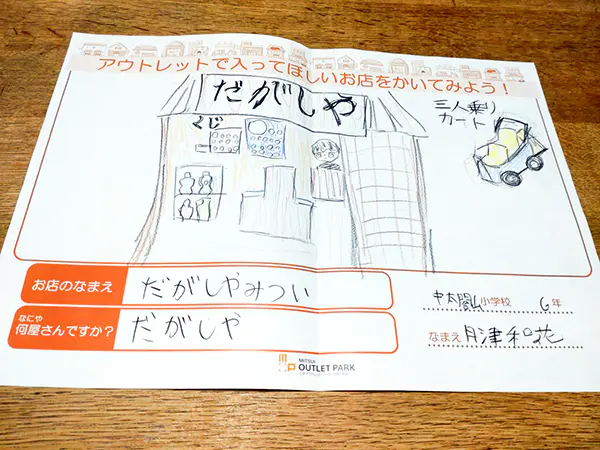 アウトレットで入ってほしいお店をかいてみよう！
だがしや
くじ
三人乗り
カート
お店のなまえ だがしやみつい
なにや
何屋さんですか？ だがしや
中太閤山小学校 6年
なまえ 月津和花
MITSUI
OUTLET PARK